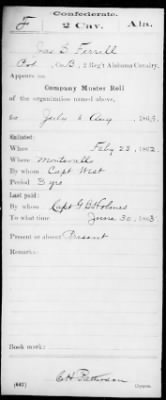 Confederate.
F 2 Cav. Ala.
Jas S Ferrill
Co. B, 2 Reg't Alabama Cavalry.
Appears on
Company Muster Roll
of the organization named above,
for July & Aug, 1863.
Enlisted:
When Feby 23, 1862.
Where Montevallo
By whom Capt West
Period 3 yrs
Last paid:
By whom Capt G B Holmes
To what time June 30, 1863.
Present or absent Present
Remarks:
Book mark:
(642) Copyist.